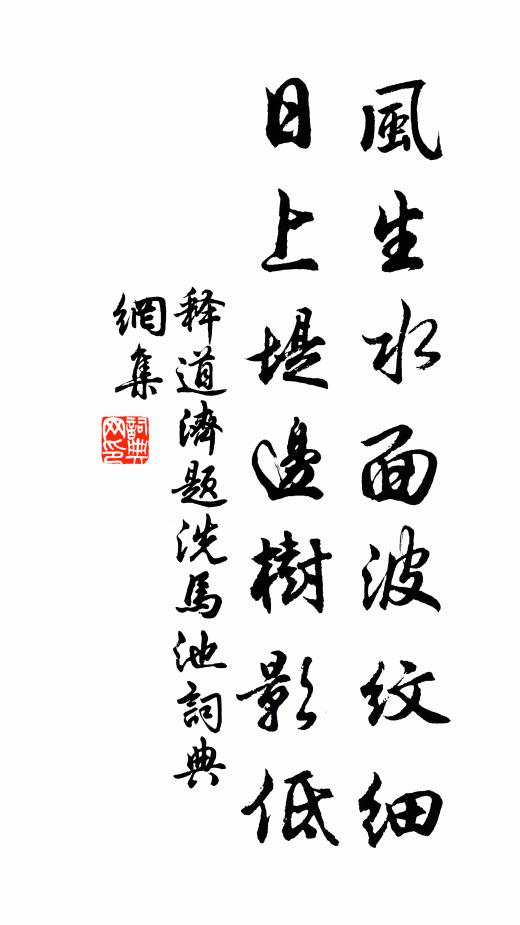 風生水面波纹細
日上堤邊樹影低
释道濟題洗馬池詞典
網集
詞典
网印